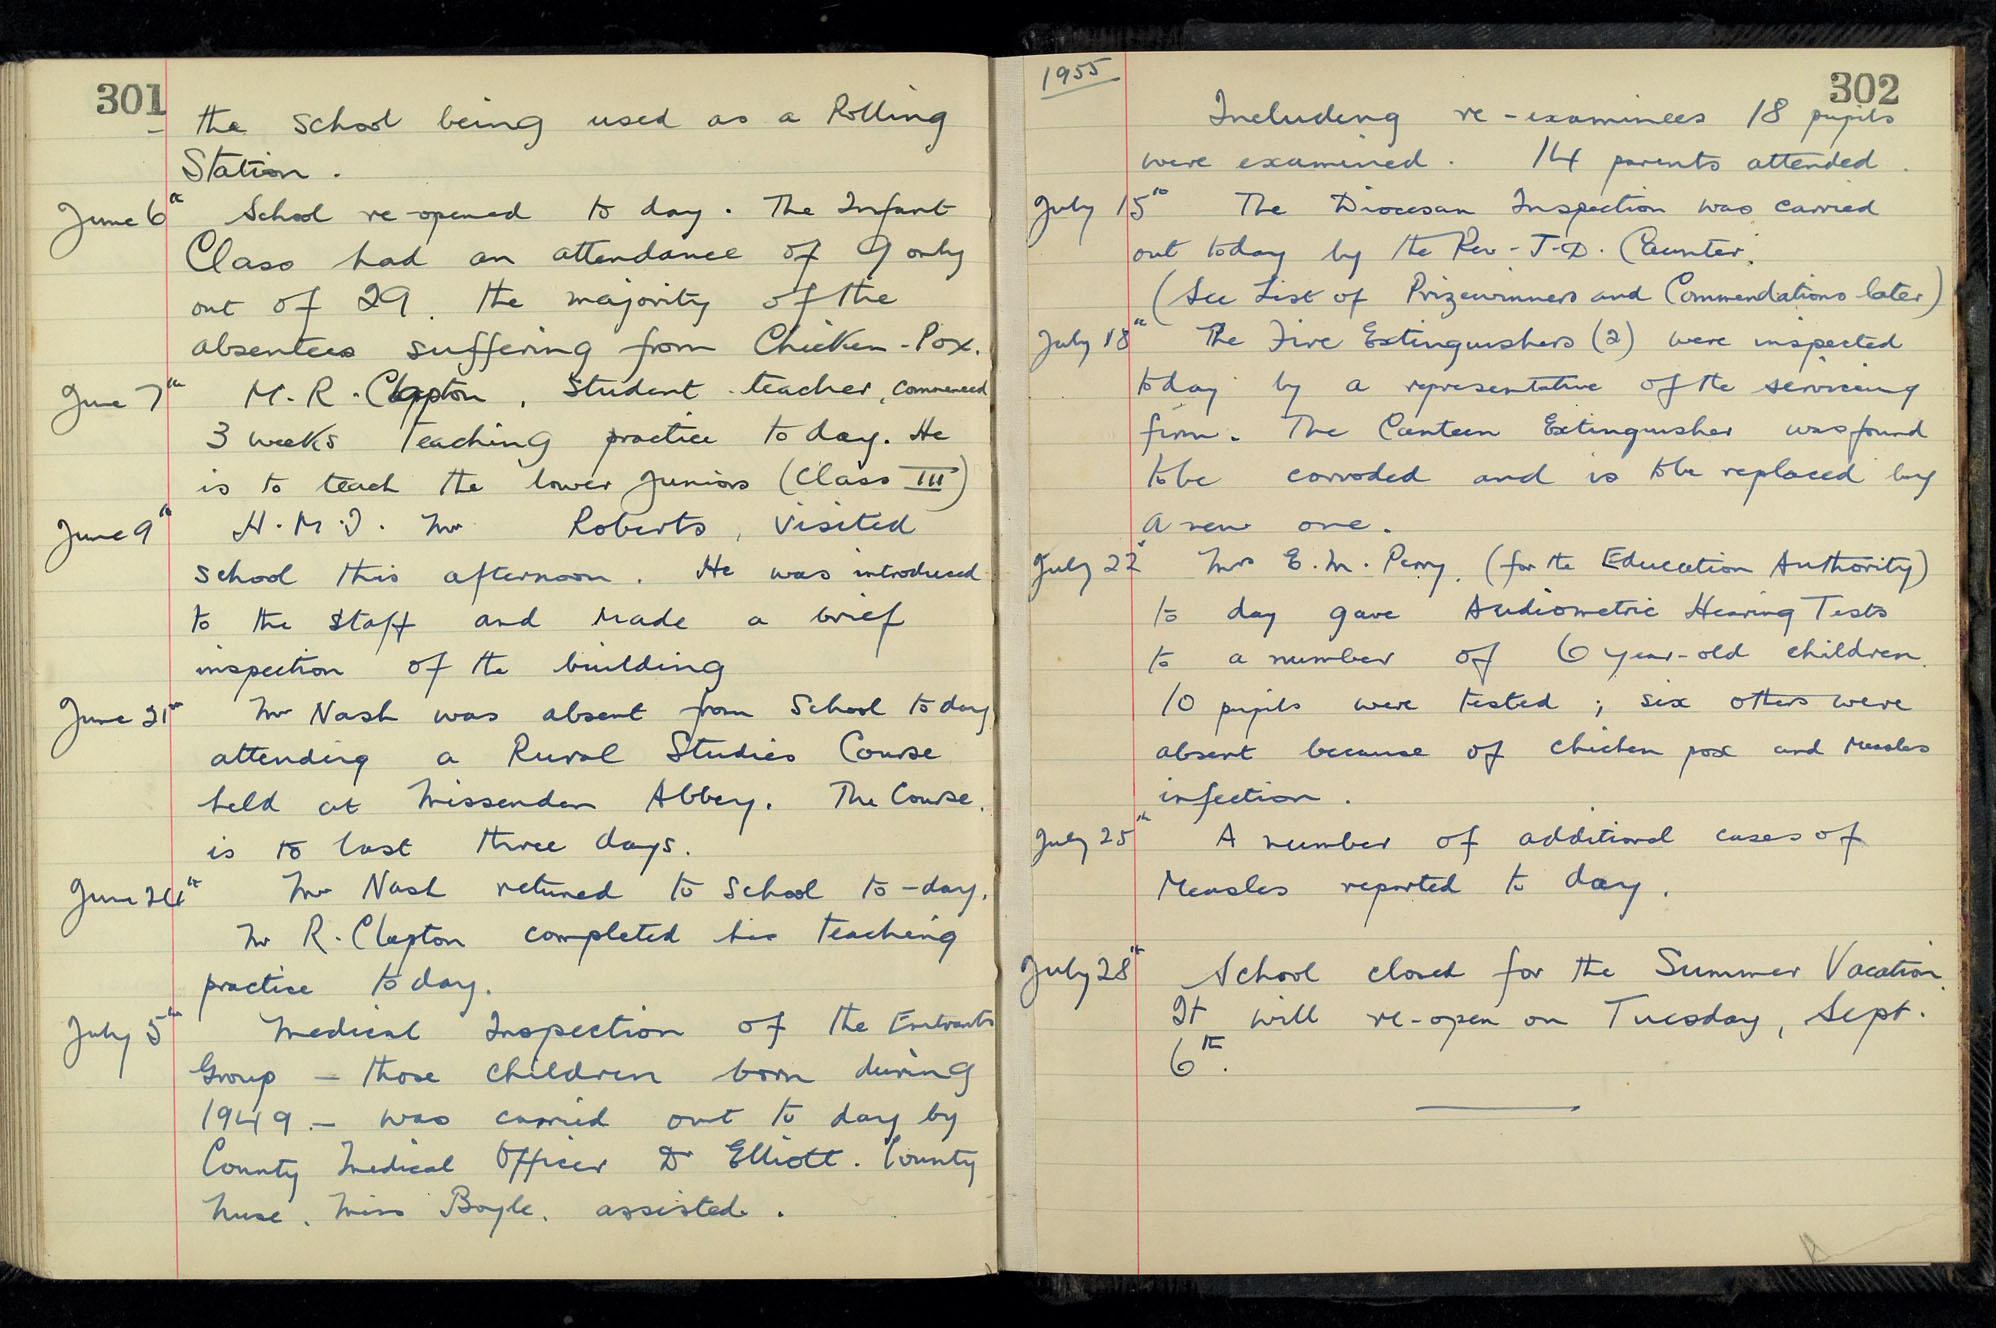 301
the school being used as a Polling
Station.
June 6th School re-opened to day. The Infant
Class had an attendance of 9 only
out of 29. the majority of the
absentees suffering from Chicken-Pox.
June 7th M. R. Clapton, Student teacher, commenced
3 weeks Teaching practice to day. He
is to teach the lower Juniors (Class III)
June 9th H.M.I. Mr Roberts, visited
school this afternoon. He was introduced
to the staff and made a brief
inspection of the building
June 21st Mr Nash was absent from School to day
attending a Rural Studies Course
held at Missenden Abbey. The Course.
is to last three days.
June 24th Mr Nash returned to School to-day.
Mr R. Clapton completed his Teaching
practice to day.
July 5th Medical Inspection of the Entrants
Group – those children born during
1949 – was carried out to day by
County Medical Officer Dr Elliott. County
Nurse, Miss Boyle, assisted.
1955
302
Including re-examinees 18 pupils
were examined. 14 parents attended.
July 15th The Diocesan Inspection was carried
out today by the Rev. T.D. Counter.
(See List of Prizewinners and Commendations later)
July 18th The Fire Extinguishers (2) were inspected
today by a representative of the servicing
firm. The Canteen Extinguisher was found
to be corroded and is to be replaced by
a new one.
July 22 Mrs E. M. Perry, (for the Education Authority)
to day gave Audiometric Hearing Tests
to a number of 6 year-old children.
10 pupils were tested; six others were
absent because of chicken pox and Measles
infection.
July 25th A number of additional cases of
Measles reported to day.
July 28th School closed for the Summer Vacation.
It will re-open on Tuesday, Sept.
6th.